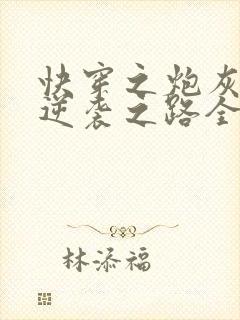 快穿之炮灰
逆袭之路全
林添福